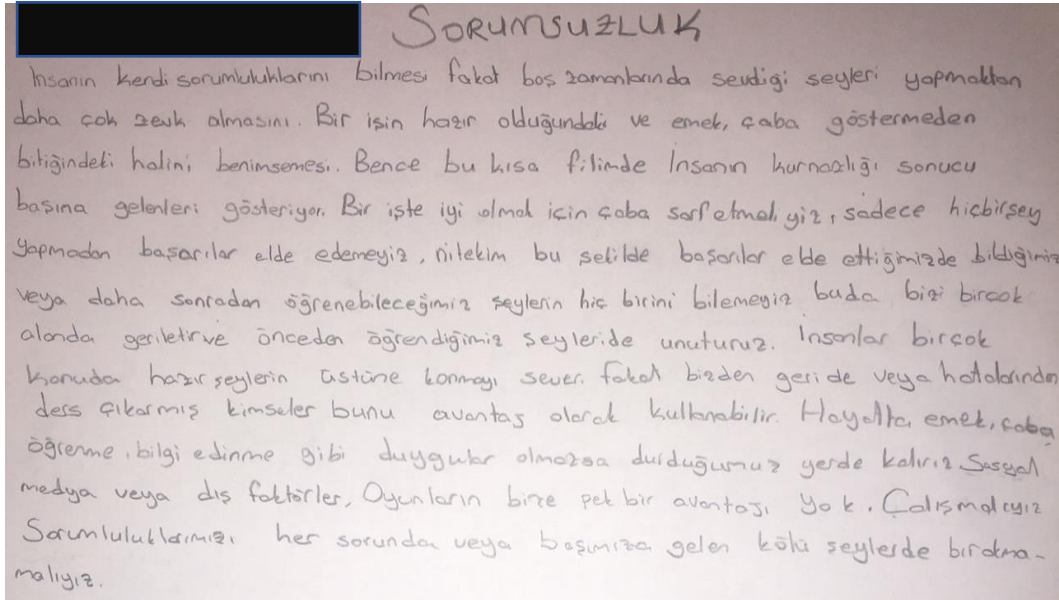 SORUMSUZLUK
İnsanın kendi sorumluluklarını bilmesi fakat boş zamanlarında sevdiği seyleri yapmaktan
daha çok zevk almasını. Bir işin hazır olduğundaki ve emek, çaba göstermeden
bitiğindeki halini benimsemesi. Bence bu kısa filimde İnsanın kurnazlığı sonucu
başına gelenleri gösteriyor. Bir işte iyi olmak için çaba sarf etmeliyiz, sadece hiçbirşey
yapmadan başarılar elde edemeyiz, nitekim bu şekilde başarılar elde ettiğimizde bildiğimiz
veya daha sonradan öğrenebileceğimiz şeylerin hiç birini bilemeyiz buda bizi birçok
alanda geriletir ve önceden öğrendiğimiz seyleride unuturuz. İnsanlar birçok
konuda hazır şeylerin üstüne konmayı sever. fakat bizden geride veya hatalarından
ders çıkarmış kimseler bunu avantaj olarak kullanabilir. Hayatta, emek, çaba
öğrenme, bilgi edinme gibi duygular olmazsa durduğumuz yerde kalırız Sosyal
medya veya dış faktörler, Oyunların bize pek bir avantajı yok. Çalışmalıyız
Sorumluluklarımızı her sorunda veya başımıza gelen kötü seylerde bırakma-
malıyız.